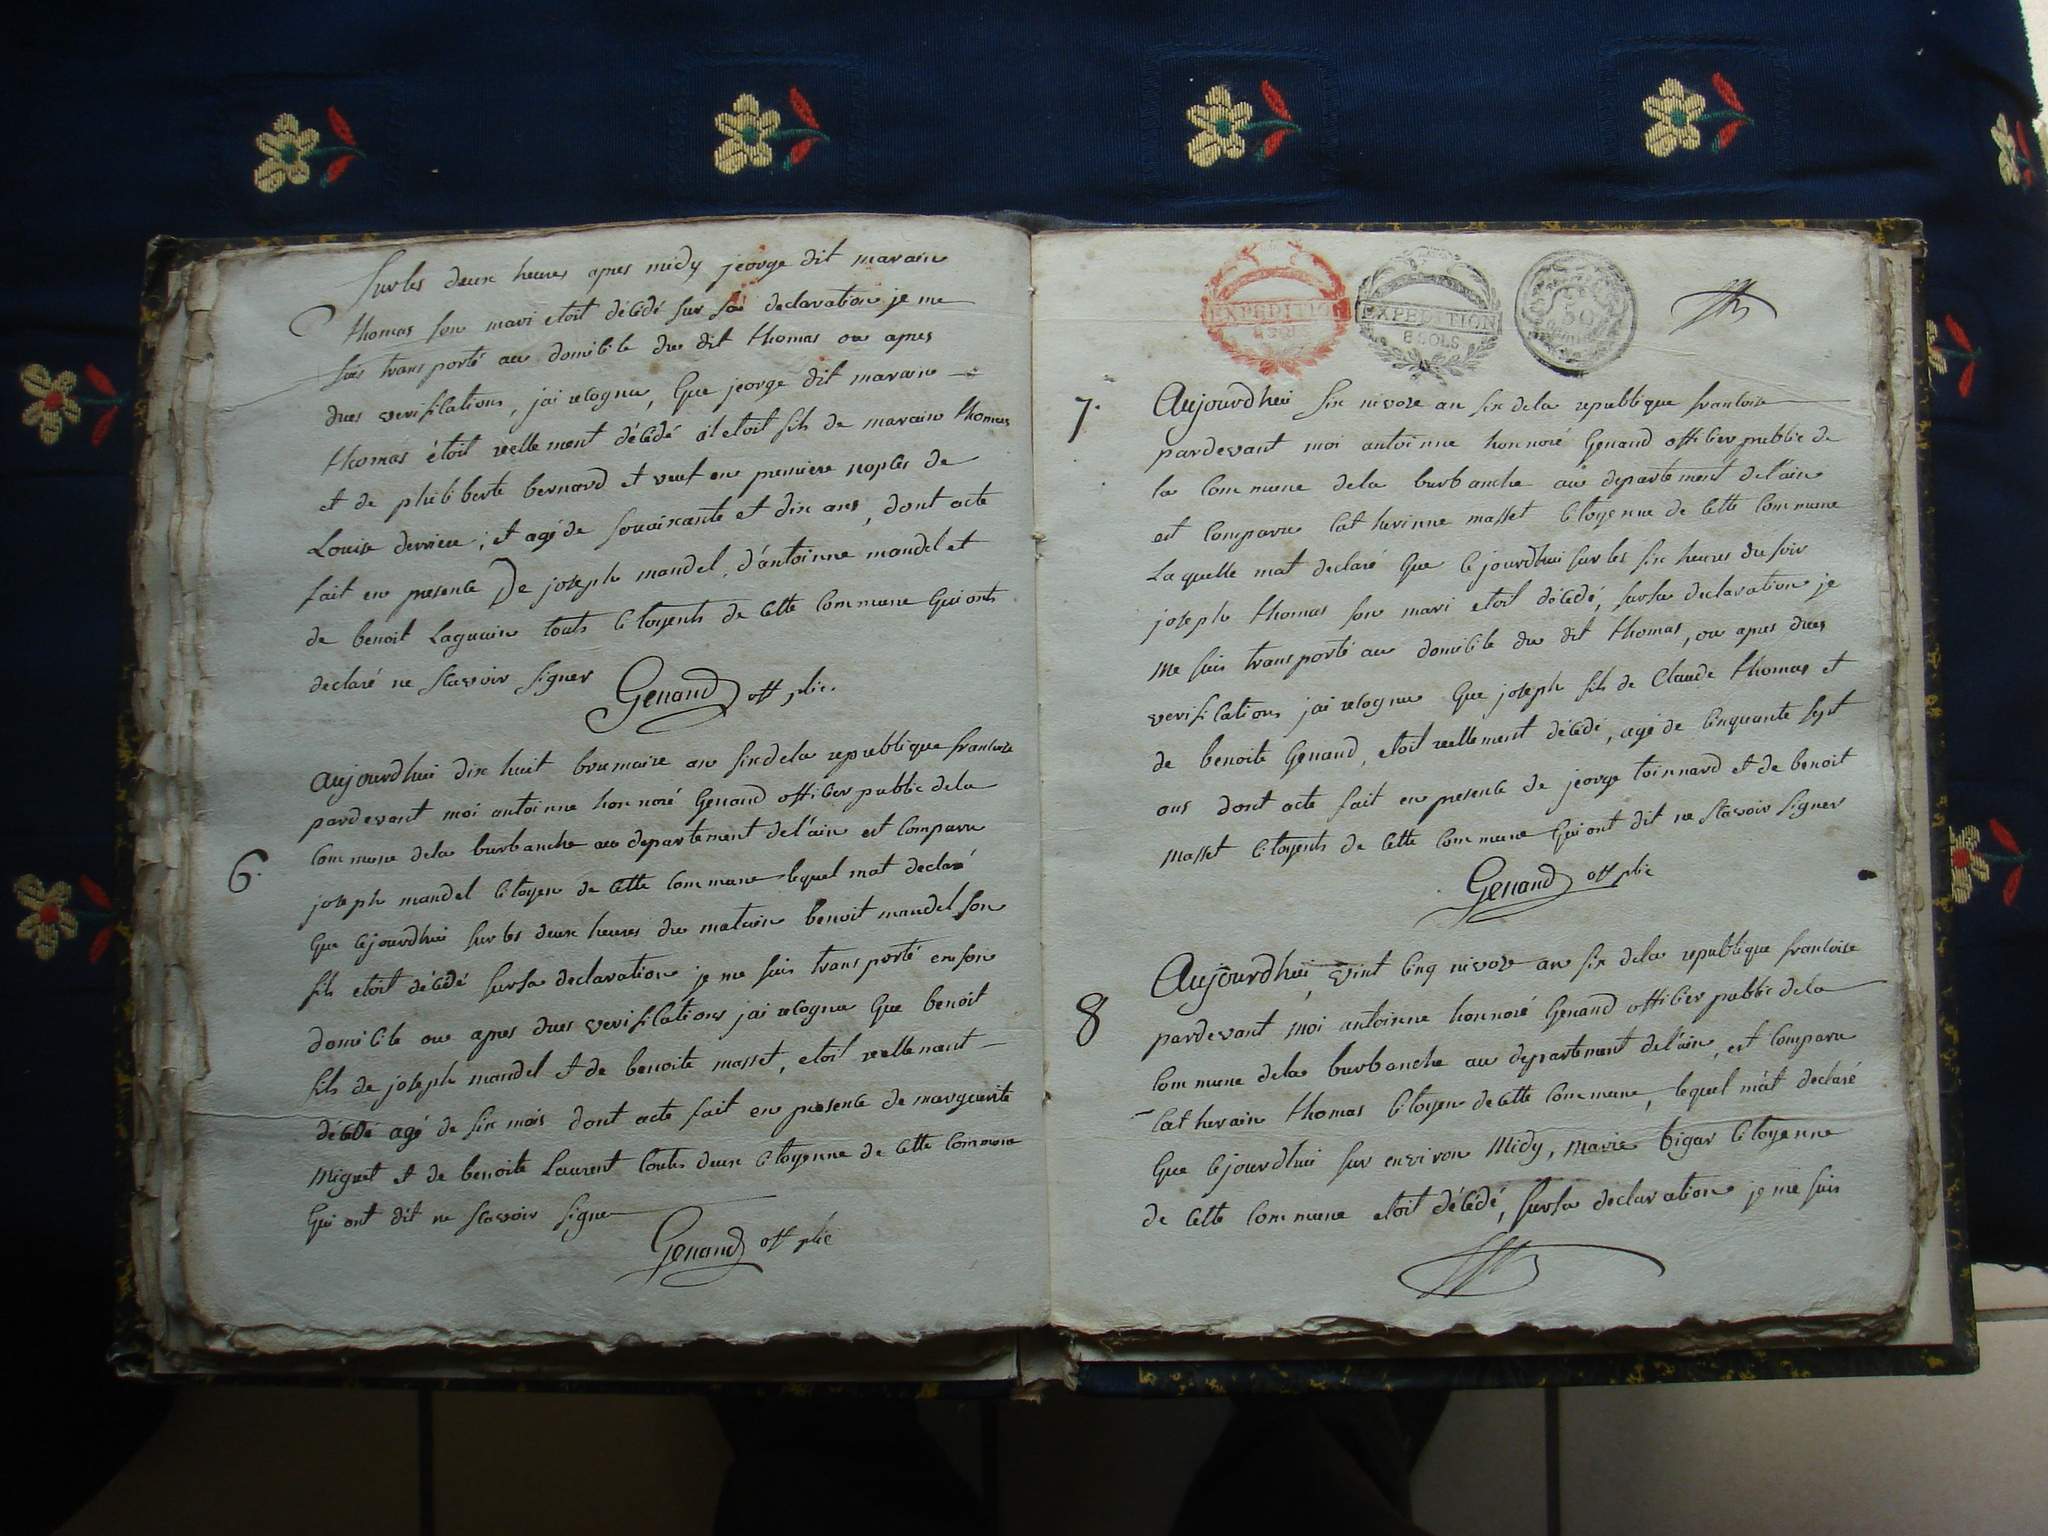 Sur les deux heures apres midy jeorge dit marain
thomas son mari etoit décédé sur sa declaration je me
suis transporté au domicile du dit thomas ou apres
dues verifications, jai recognu, que jeorge dit maraine
thomas étoit reellement décédé il etoit fils de marain thomas
et de philiberte bernard et veuf en premiere nopces de
Louise derriere; et agé de souaixante et dix ans, dont acte
fait en presence De joseph mandel, d'antoinne mandel et
de benoit Laguain touts citoyents de cette commune qui onts
declaré ne scavoir signer
Genand off plic.
6.
aujourdhui dix huit brumaire an six dela republique francoise
pardevant moi antoinne honnoré Genand officier public dela
commune dela burbanche au departement de l'ain est comparu
joseph mandel citoyen de cette commune lequel mat declaré
que cejourdhui sur les deux heures du matain benoit mandel son
fils etoit décédé sursa declaration je me suis transporté enson
domicile ou apres dues verifications jai recognu que benoit
fils de joseph mandel et de benoite masset, etoit reellement
décédé agé de six mois dont acte fait en presence de marguerite
miguet et de benoite Laurent toutes deux citoyenne de cette commune
qui ont dit ne scavoir signe
Genand off plic
EXPEDITION
8 SOLS
EXPEDITION
8 SOLS
50
7.
Aujourdhui six nivose an six dela republique francoise
pardevant moi antoinne honnoré Genand officier public de
la commune dela burbanche au departement de l'ain
est comparue catherinne masset citoyenne de cette commune
Laquelle mat declaré que cejourdhui sur les six heures du soir
joseph thomas son mari etoit décédé, sursa declaration je
me suis transporté au domicile du dit thomas, ou apres dues
verifications jai recognu que joseph fils de Claude thomas et
de benoite Genand, etoit reellement décédé, agé de cinquante sept
ans dont acte fait en presence de jeorge toinnard et de benoit
masset citoyents de cette commune qui ont dit ne scavoir signer
Genand off plic
8
Aujourdhui, vint cinq nivose an six dela republique francoise
pardevant moi antoinne honnoré Genand officier public dela
commune dela burbanche au departement de l'ain, est comparu
catherain thomas citoyen de cette commune, lequel m'at declaré
que cejourdhui sur environ midy, marie bigar citoyenne
de cette commune etoit décédé, sursa declaration je me suis